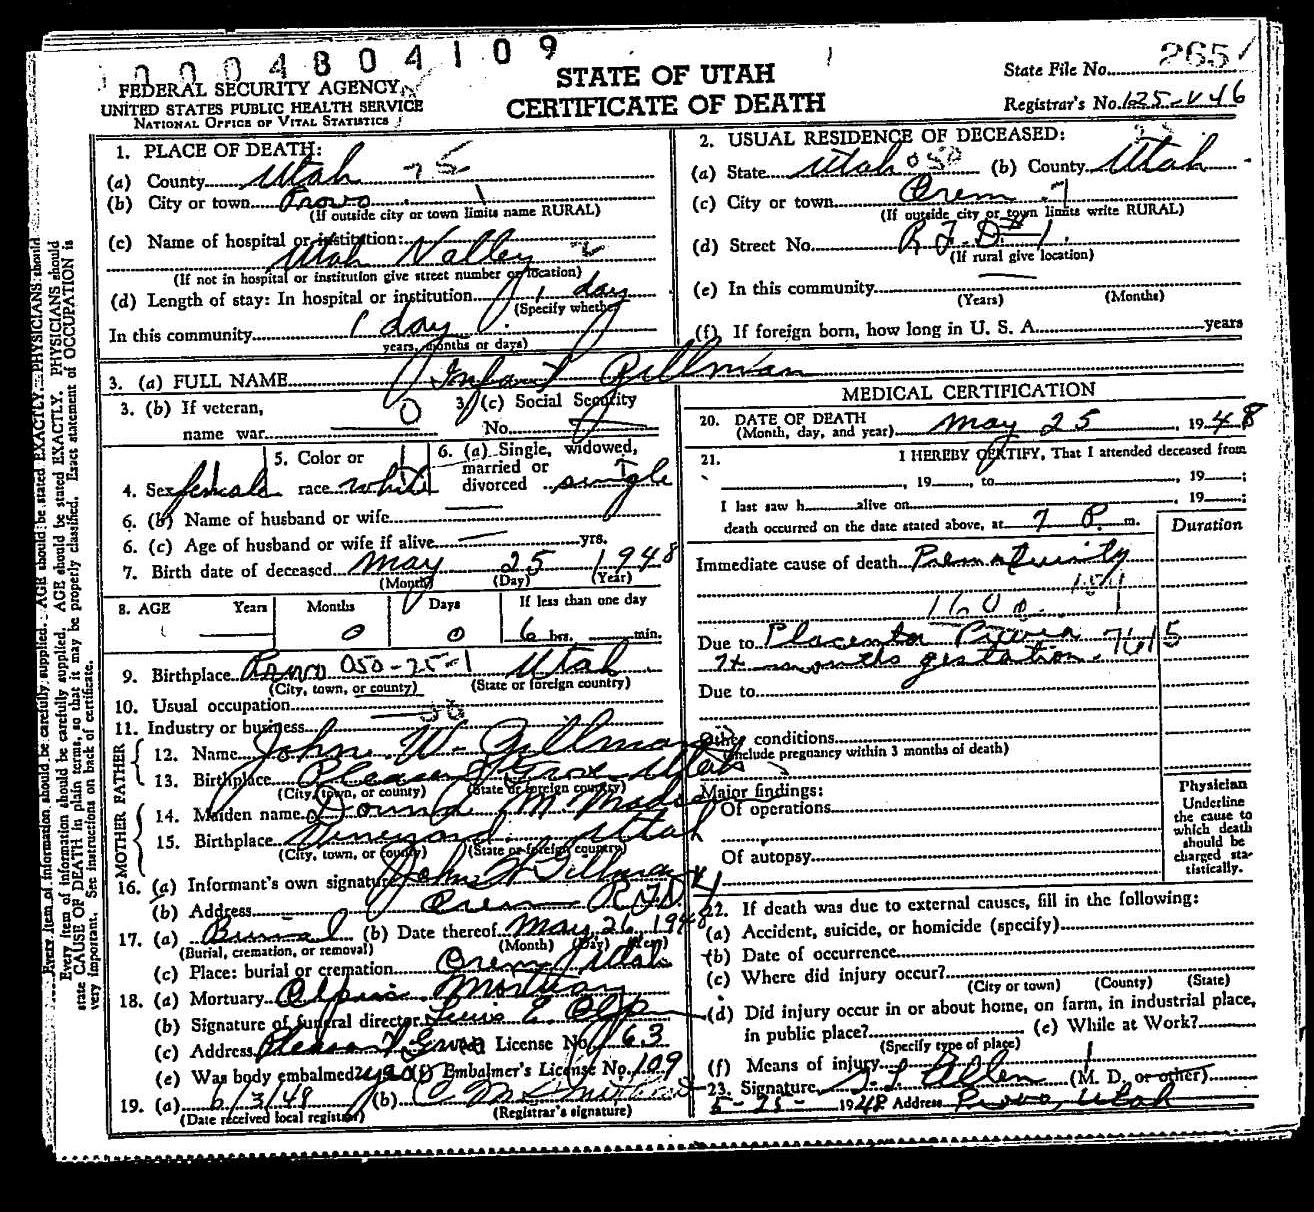 0004804109
265
FEDERAL SECURITY AGENCY
UNITED STATES PUBLIC HEALTH SERVICE
NATIONAL OFFICE OF VITAL STATISTICS
STATE OF UTAH
CERTIFICATE OF DEATH
State File No.
Registrar's No. 125-V46
1. PLACE OF DEATH:
(a) County Utah
(b) City or town Provo
(If outside city or town limits name RURAL)
(c) Name of hospital or institution:
Utah Valley
(If not in hospital or institution give street number or location)
(d) Length of stay: In hospital or institution 1 day
(Specify whether
In this community 1 day
years, months or days)
2. USUAL RESIDENCE OF DECEASED:
(a) State Utah 050 (b) County Utah
(c) City or town Orem
(If outside city or town limits write RURAL)
(d) Street No. R F D #1
(If rural give location)
(e) In this community
(Years) (Months)
(f) If foreign born, how long in U. S. A. years
3. (a) FULL NAME Infant Gillman
3. (b) If veteran, name war 0
3. (c) Social Security No.
4. Sex female
5. Color or race white
6. (a) Single, widowed, married or divorced single
6. (b) Name of husband or wife
6. (c) Age of husband or wife if alive yrs.
7. Birth date of deceased May 25 1948
(Month) (Day) (Year)
8. AGE Years Months Days If less than one day
0 0 6 hrs. min.
9. Birthplace Provo 050-25-1 Utah
(City, town, or county) (State or foreign country)
10. Usual occupation
11. Industry or business
FATHER
12. Name John W. Gillman
13. Birthplace Pleasant Grove Utah
(City, town, or county) (State or foreign country)
MOTHER
14. Maiden name Donna M
15. Birthplace Vineyard Utah
(City, town, or county) (State or foreign country)
16. (a) Informant's own signature John W Gillman
(b) Address Orem RFD #1
17. (a) Burial (b) Date thereof May 26 1948
(Burial, cremation, or removal) (Month) (Day) (Year)
(c) Place: burial or cremation Orem Utah
18. (a) Mortuary Olpin Mortuary
(b) Signature of funeral director E. Olpin
(c) Address Pleasant Grove License No. 63
(e) Was body embalmed? Embalmer's License No. 109
19. (a) 6/3/48 (b)
(Date received local registrar) (Registrar's signature)
MEDICAL CERTIFICATION
20. DATE OF DEATH
(Month, day, and year) May 25, 1948
21. I HEREBY CERTIFY, That I attended deceased from
, 19 , to , 19 ;
I last saw h alive on , 19 ;
death occurred on the date stated above, at 7 P. m.
Duration
Immediate cause of death Prematurity
Due to Placenta Previa 7615
7+ months gestation.
Due to
Other conditions
(Include pregnancy within 3 months of death)
Major findings:
Of operations
Of autopsy
Physician
Underline
the cause to
which death
should be
charged sta-
tistically.
22. If death was due to external causes, fill in the following:
(a) Accident, suicide, or homicide (specify)
(b) Date of occurrence
(c) Where did injury occur?
(City or town) (County) (State)
(d) Did injury occur in or about home, on farm, in industrial place,
in public place? (e) While at Work?
(Specify type of place)
(f) Means of injury
23. Signature Allen (M. D. or other)
5-25- 1948 Address Provo, Utah
Every item of information should be carefully supplied. AGE should be stated EXACTLY. PHYSICIANS should
state CAUSE OF DEATH in plain terms, so that it may be properly classified. Exact statement of OCCUPATION is
very important. See instructions on back of certificate.